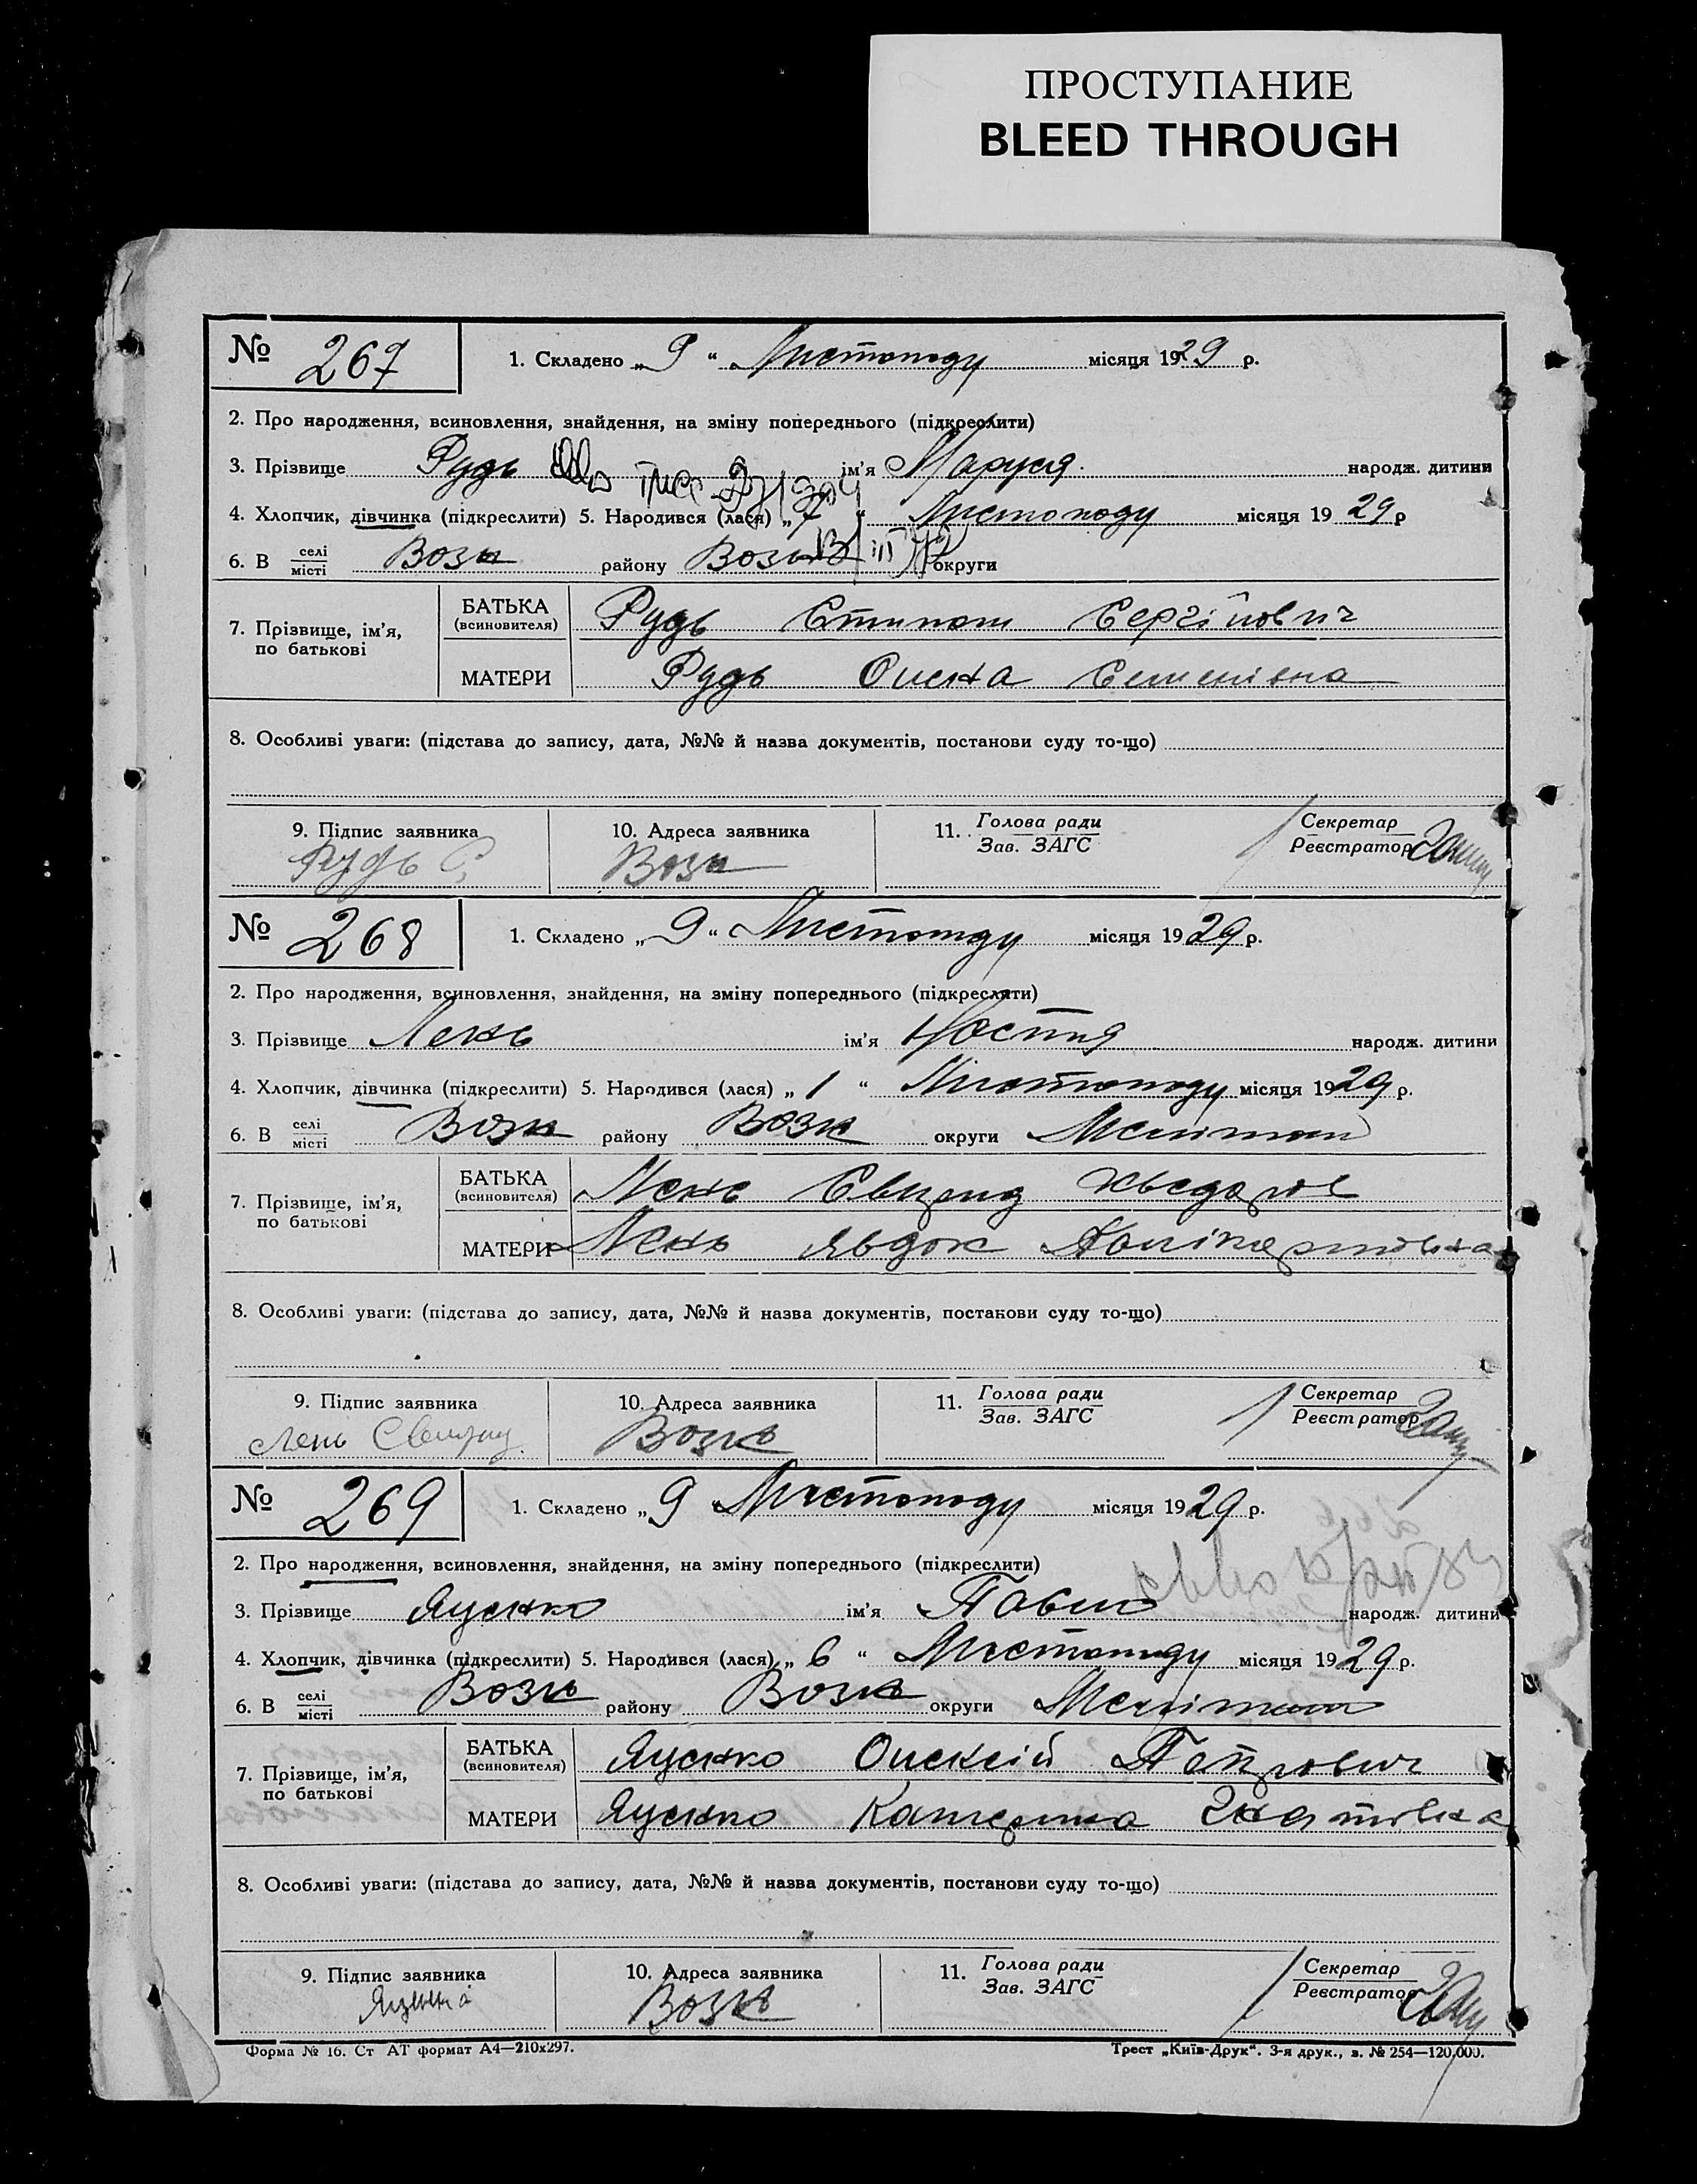 ПРОСТУПАНИЕ
BLEED THROUGH
№ 267 1. Складено „ 9 “ Листопаду місяця 1929 р.
2. Про народження, всиновлення, знайдення, на зміну попереднього (підкреслити)
3. Прізвище Рудь ім'я Маруся народж. дитини
4. Хлопчик, дівчинка (підкреслити) 5. Народився (лася) „ 7 “ Листопаду місяця 19 29 р
6. В селі/місті Возн району Возн округи
7. Прізвище, ім'я, по батькові
БАТЬКА (всиновителя) Рудь Степан Сергійович
МАТЕРИ Рудь Олена Семенівна
8. Особливі уваги: (підстава до запису, дата, №№ й назва документів, постанови суду то-що)
9. Підпис заявника 10. Адреса заявника 11. Голова ради/Зав. ЗАГС Секретар/Реєстратор
Рудь С Возн
№ 268 1. Складено „ 9 “ Листопаду місяця 19 29 р.
2. Про народження, всиновлення, знайдення, на зміну попереднього (підкреслити)
3. Прізвище Лень ім'я Настя народж. дитини
4. Хлопчик, дівчинка (підкреслити) 5. Народився (лася) „ 1 “ Листопаду місяця 19 29 р.
6. В селі/місті Возн району Возн округи Мелітоп
7. Прізвище, ім'я, по батькові
БАТЬКА (всиновителя) Лень
МАТЕРИ Лень Явдок
8. Особливі уваги: (підстава до запису, дата, №№ й назва документів, постанови суду то-що)
9. Підпис заявника 10. Адреса заявника 11. Голова ради/Зав. ЗАГС Секретар/Реєстратор
Лень Возн
№ 269 1. Складено „ 9 “ Листопаду місяця 19 29 р.
2. Про народження, всиновлення, знайдення, на зміну попереднього (підкреслити)
3. Прізвище Яценко ім'я Павло народж. дитини
4. Хлопчик, дівчинка (підкреслити) 5. Народився (лася) „ 6 “ Листопаду місяця 19 29 р.
6. В селі/місті Возн району Возн округи Мелітоп
7. Прізвище, ім'я, по батькові
БАТЬКА (всиновителя) Яценко Олексій Петрович
МАТЕРИ Яценко Катерина
8. Особливі уваги: (підстава до запису, дата, №№ й назва документів, постанови суду то-що)
9. Підпис заявника 10. Адреса заявника 11. Голова ради/Зав. ЗАГС Секретар/Реєстратор
Возн
Форма № 16. Ст АТ формат А4—210х297. Трест „Київ-Друк“. 3-я друк., з. № 254—120,000.